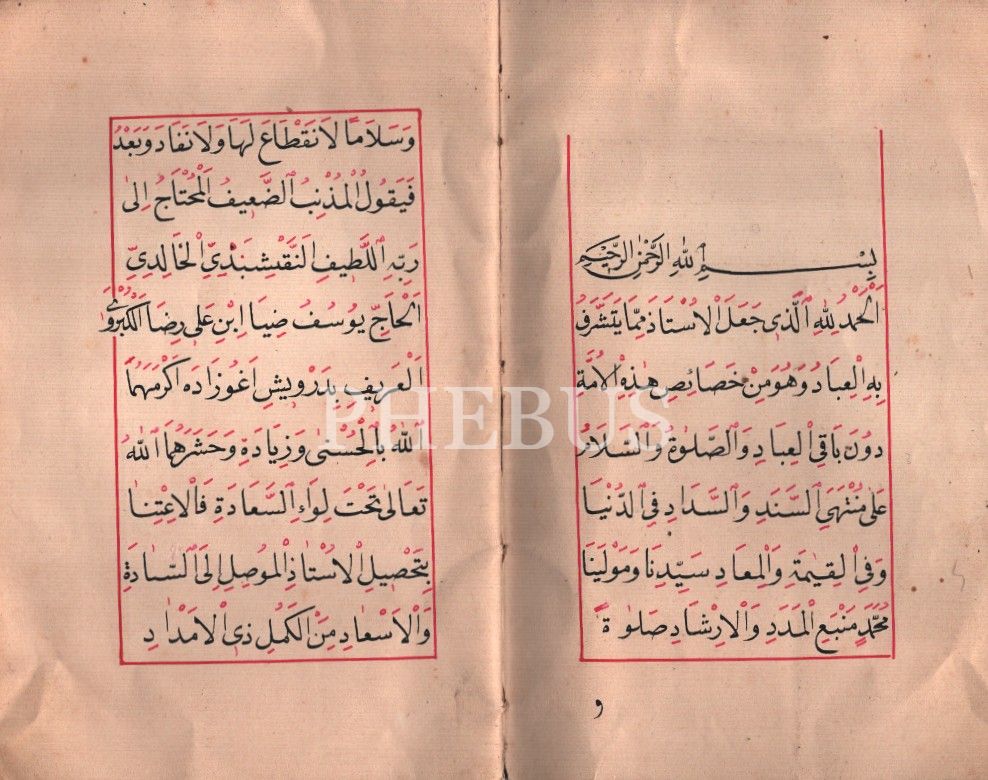 بِسْمِ اللهِ الرَّحْمٰنِ الرَّحِيْمِ
اَلْحَمْدُ لِلّٰهِ الَّذِى جَعَلَ الْاُسْتَاذَ مِمَّا يَتَشَرَّفُ
بِهِ الْعِبَادُ وَهُوَ مِنْ خَصَائِصِ هٰذِهِ الْاُمَّةِ
دُونَ بَاقِى الْعِبَادِ وَالصَّلٰوةُ وَالسَّلَامُ
عَلٰى مُنْتَهَى السَّنَدِ وَالسَّدَادِ فِى الدُّنْيَا
وَفِى الْقِيٰمَةِ وَالْمَعَادِ سَيِّدِنَا وَمَوْلَيْنَا
مُحَمَّدٍ مَنْبَعِ الْمَدَدِ وَالْاِرْشَادِ صَلٰوةً
و
وَسَلَامًا لَا نَقْطَاعَ لَهَا وَلَا نَفَادَ وَبَعْدُ
فَيَقُولُ الْمُذْنِبُ الضَّعِيفُ الْمُحْتَاجُ اِلٰى
رَبِّهِ اللَّطِيفِ النَّقْشِبَنْدِىِّ الْخَالِدِىِّ
اَلْحَاجِّ يُوسُفُ ضِيَا اِبْنِ عَلِى رِضَا الْكُبْرَوِىِّ
اَلْعَرِيفِ بِدَرْوِيشِ اَغُوزَادَه اَكْرَمَهُمَا
اللّٰهُ بِالْحُسْنٰى وَزِيَادَةٍ وَحَشَرَهُمَا اللّٰهُ
تَعَالٰى تَحْتَ لِوَاءِ السَّعَادَةِ فَالْاِعْتِنَا
بِتَحْصِيلِ الْاُسْتَاذِ الْمُوصِلِ اِلَى السَّادَةِ
وَالْاَسْعَادِ مِنَ الْكَمَلِ ذِى الْاَمْدَادِ
PHEBUS